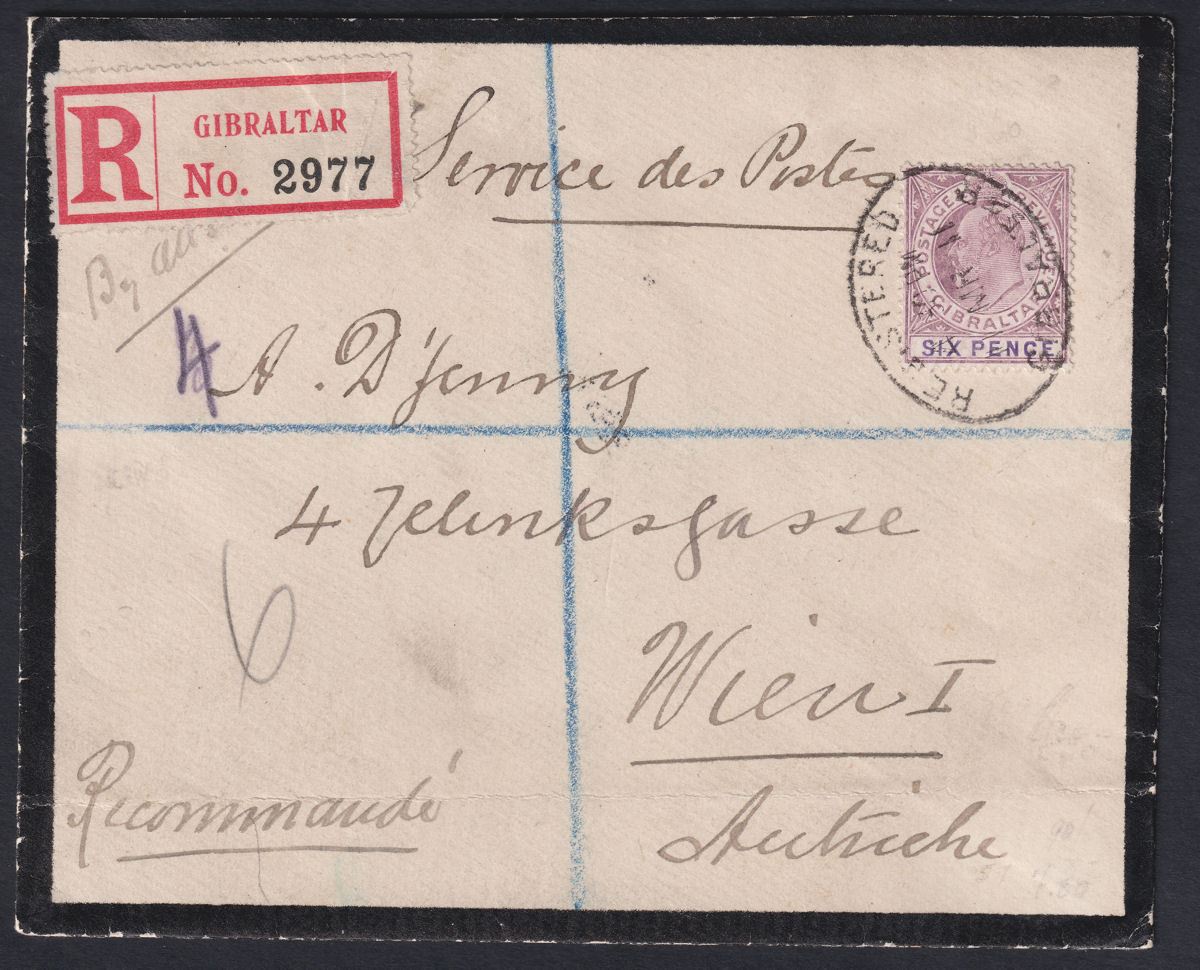 R GIBRALTAR
No. 2977
Service des Postes
REGISTERED GIBRALTAR
MR 11
POSTAGE REVENUE
GIBRALTAR
SIX PENCE
By
4
A. D'Jenny
4 Jelinksgasse
6
Wien I
Recommandé
Autriche